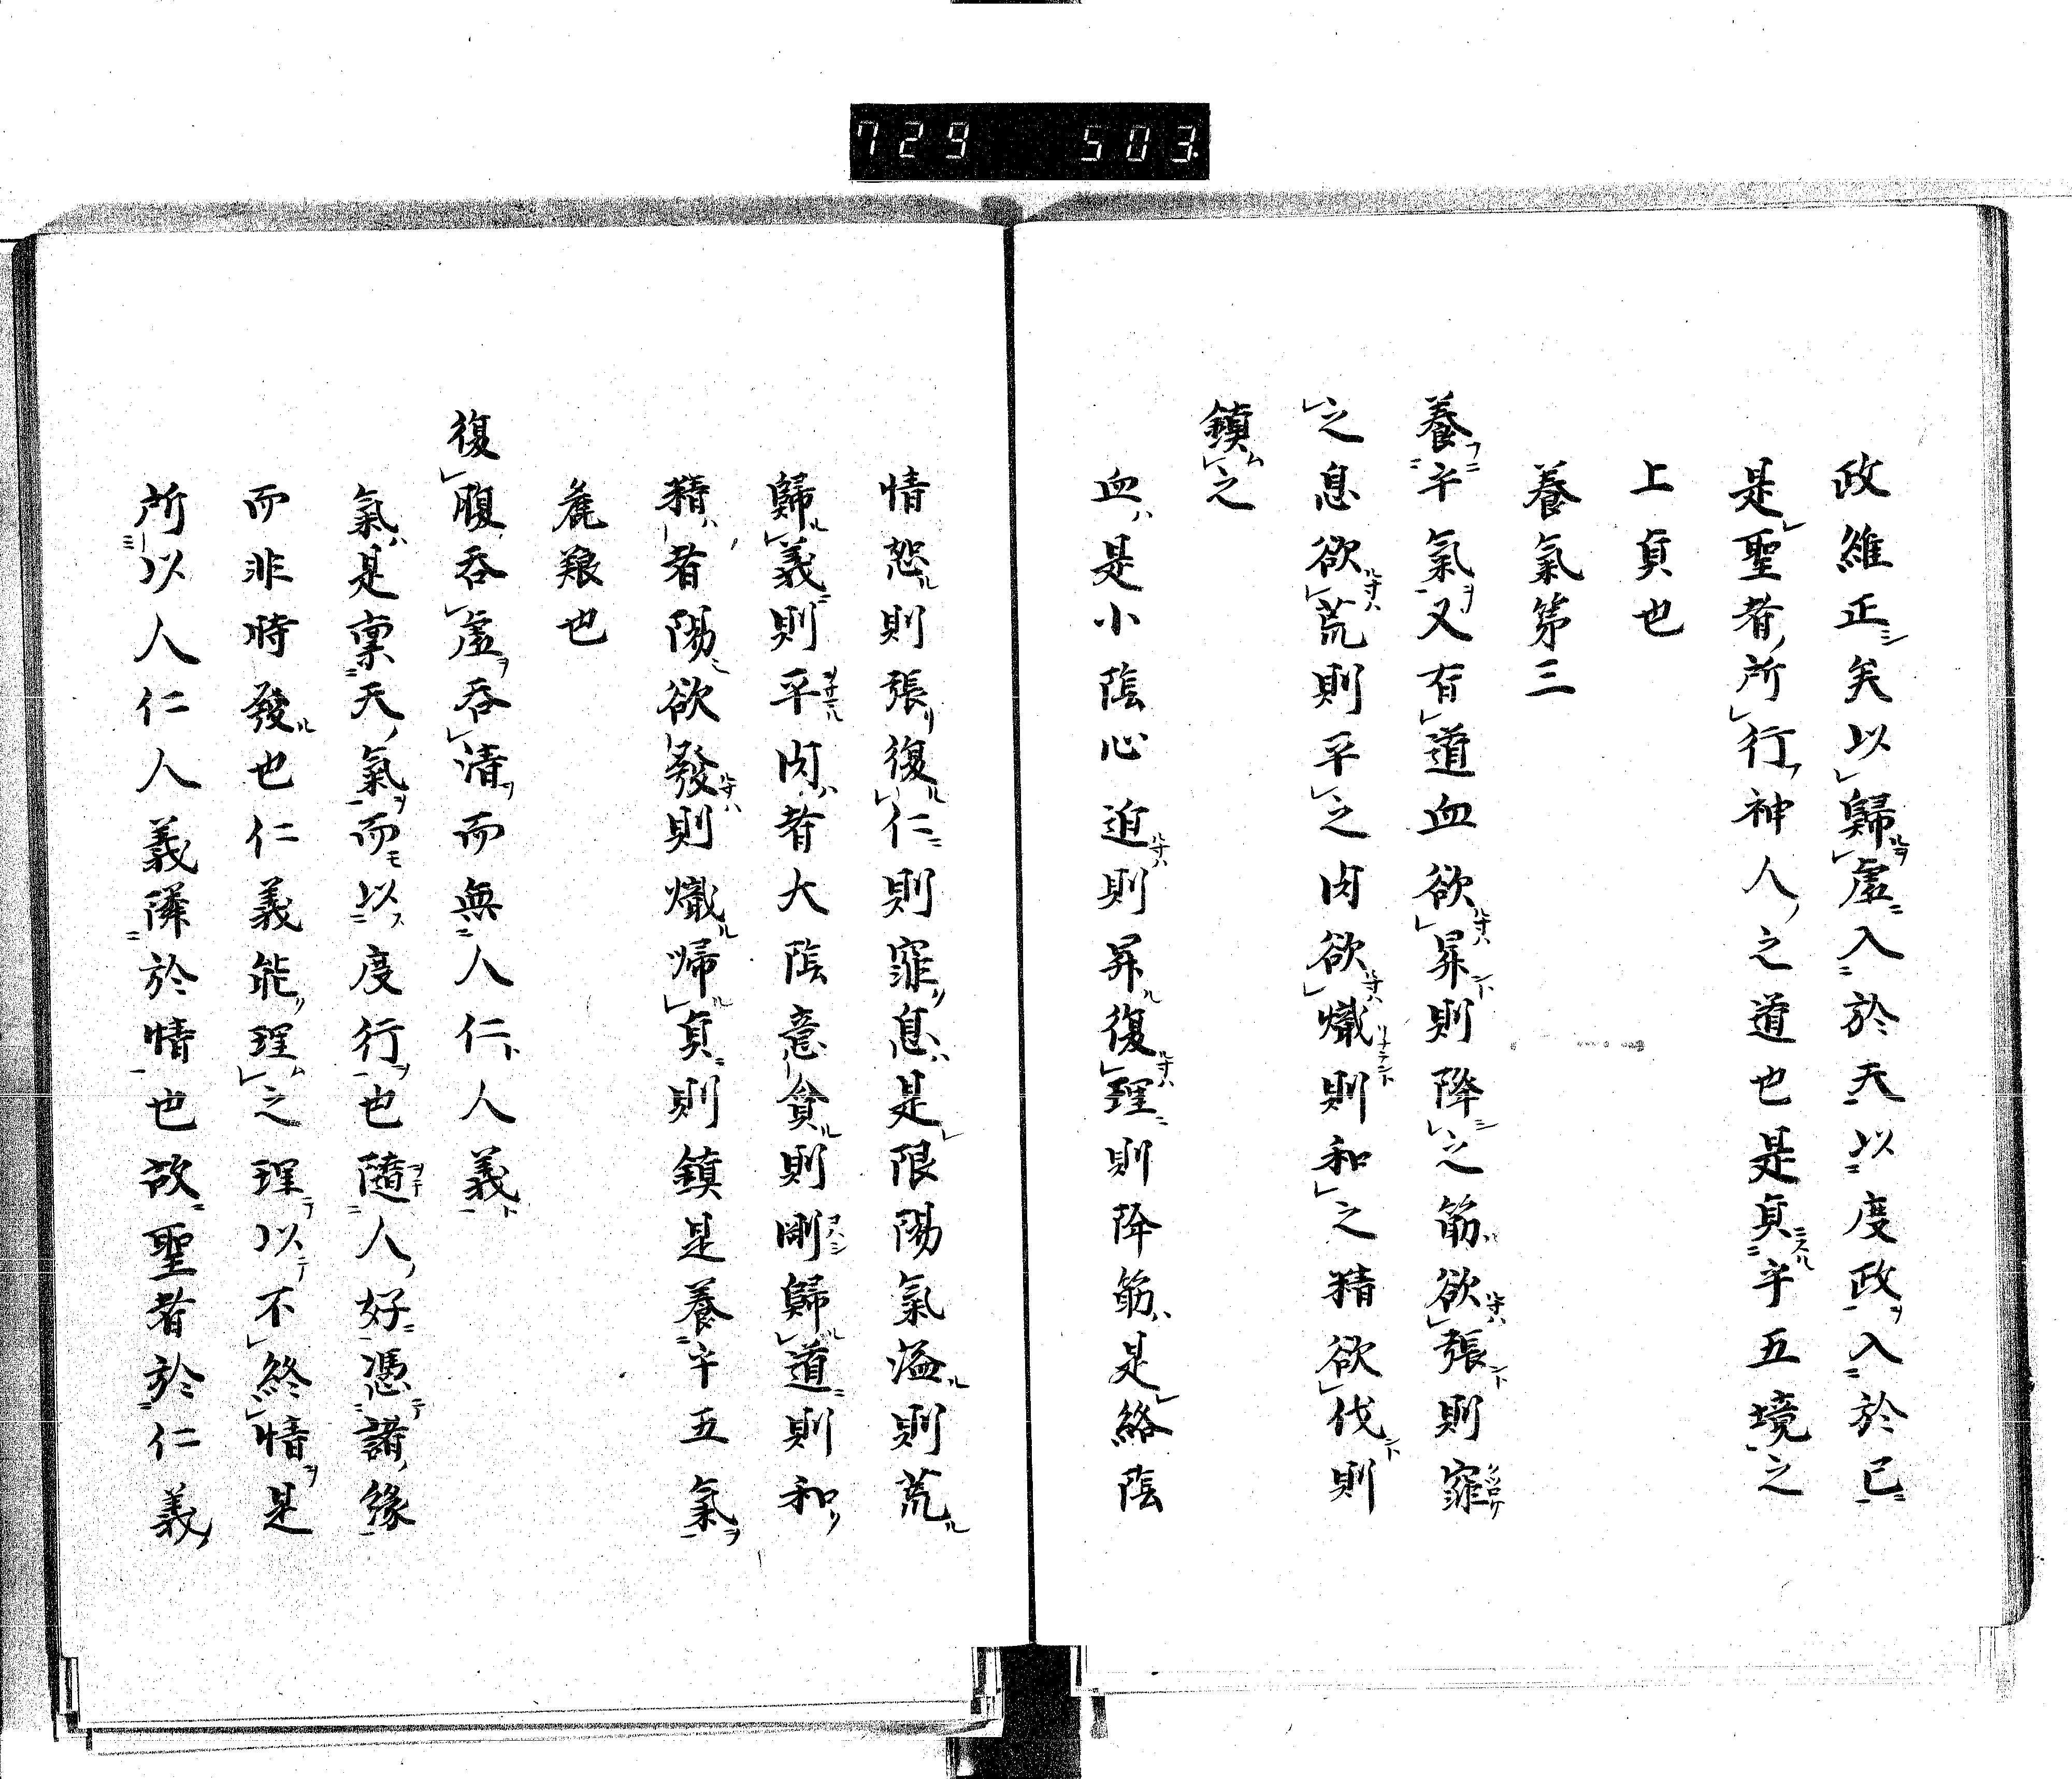 729 503
政維正矣以歸虛入於天以度政入於己
是聖者所行神人之道也是貞乎五境之
上貞也
養氣第三
養乎氣又有道血欲昇則降之筋欲張則窕
之息欲荒則平之肉欲熾則和之精欲伐則
鎮之
血是小陰心迫則昇復理則降筋是絡陰
情怒則張復仁則窕息是限陽氣溢則荒
歸義則平肉者大陰意貪則剛歸道則和
精者陽欲發則熾歸貞則鎮是養乎五氣
麁艱也
復腹吞虛吞清而無人仁人義
氣是稟天氣而以度行也隨人好憑諸緣
而非時發也仁義能理之理以不終情是
所以人仁人義隣於情也故聖者於仁義